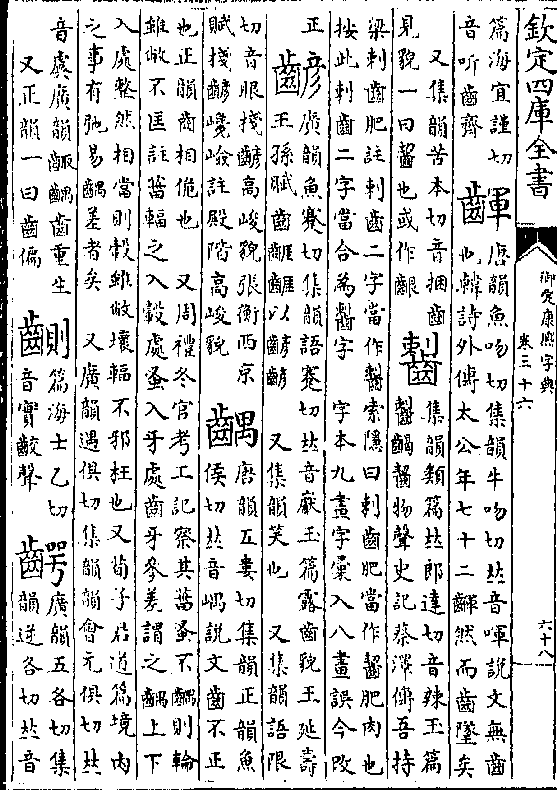 欽定四庫全書
御定康熙字典
卷三十六
六十八
篇海宜謹切
音听齒齊
齳
唐韻魚吻切集韻牛吻切𠀤音㖧説文無齒
也韓詩外傳太公年七十二齳然而齒墮矣
又集韻苦本切音捆齒
見貌一曰齧也或作齦
䶛
集韻類篇𠀤郎達切音辣玉篇
䶛齃齧物聲史記蔡澤傳吾持
梁刺齒肥註刺齒二字當作齧索隱曰刺齒肥當作齧肥肉也
按此刺齒二字當合為䶛字 字本九畫字彙入八畫誤今改
正
齴
廣韻魚蹇切集韻語蹇切𠀤音巘玉篇露齒貌王延壽
王孫賦齒以齴齴 又集韻笑也 又集韻語限
切音眼齴高峻貌張衡西京
賦齴巉嶮註殿階高峻貌
齵
唐韻五婁切集韻正韻魚
侯切𠀤音嵎説文齒不正
也正韻齒相佹也 又周禮冬官考工記察其菑蚤不齵則輪
雖敝不匡註菑輻之入轂處蚤入牙處齒牙參差謂之齵上下
入處整然相當則轂雖敝壞輻不邪枉也又荀子君道篇境内
之事有弛易齵差者矣 又廣韻遇俱切集韻韻會元俱切𠀤
音虞廣韻齱齵齒重生
又正韻一曰齒偏
篇海士乙切
音實齩聲
齶
廣韻五各切集
韻逆各切𠀤音